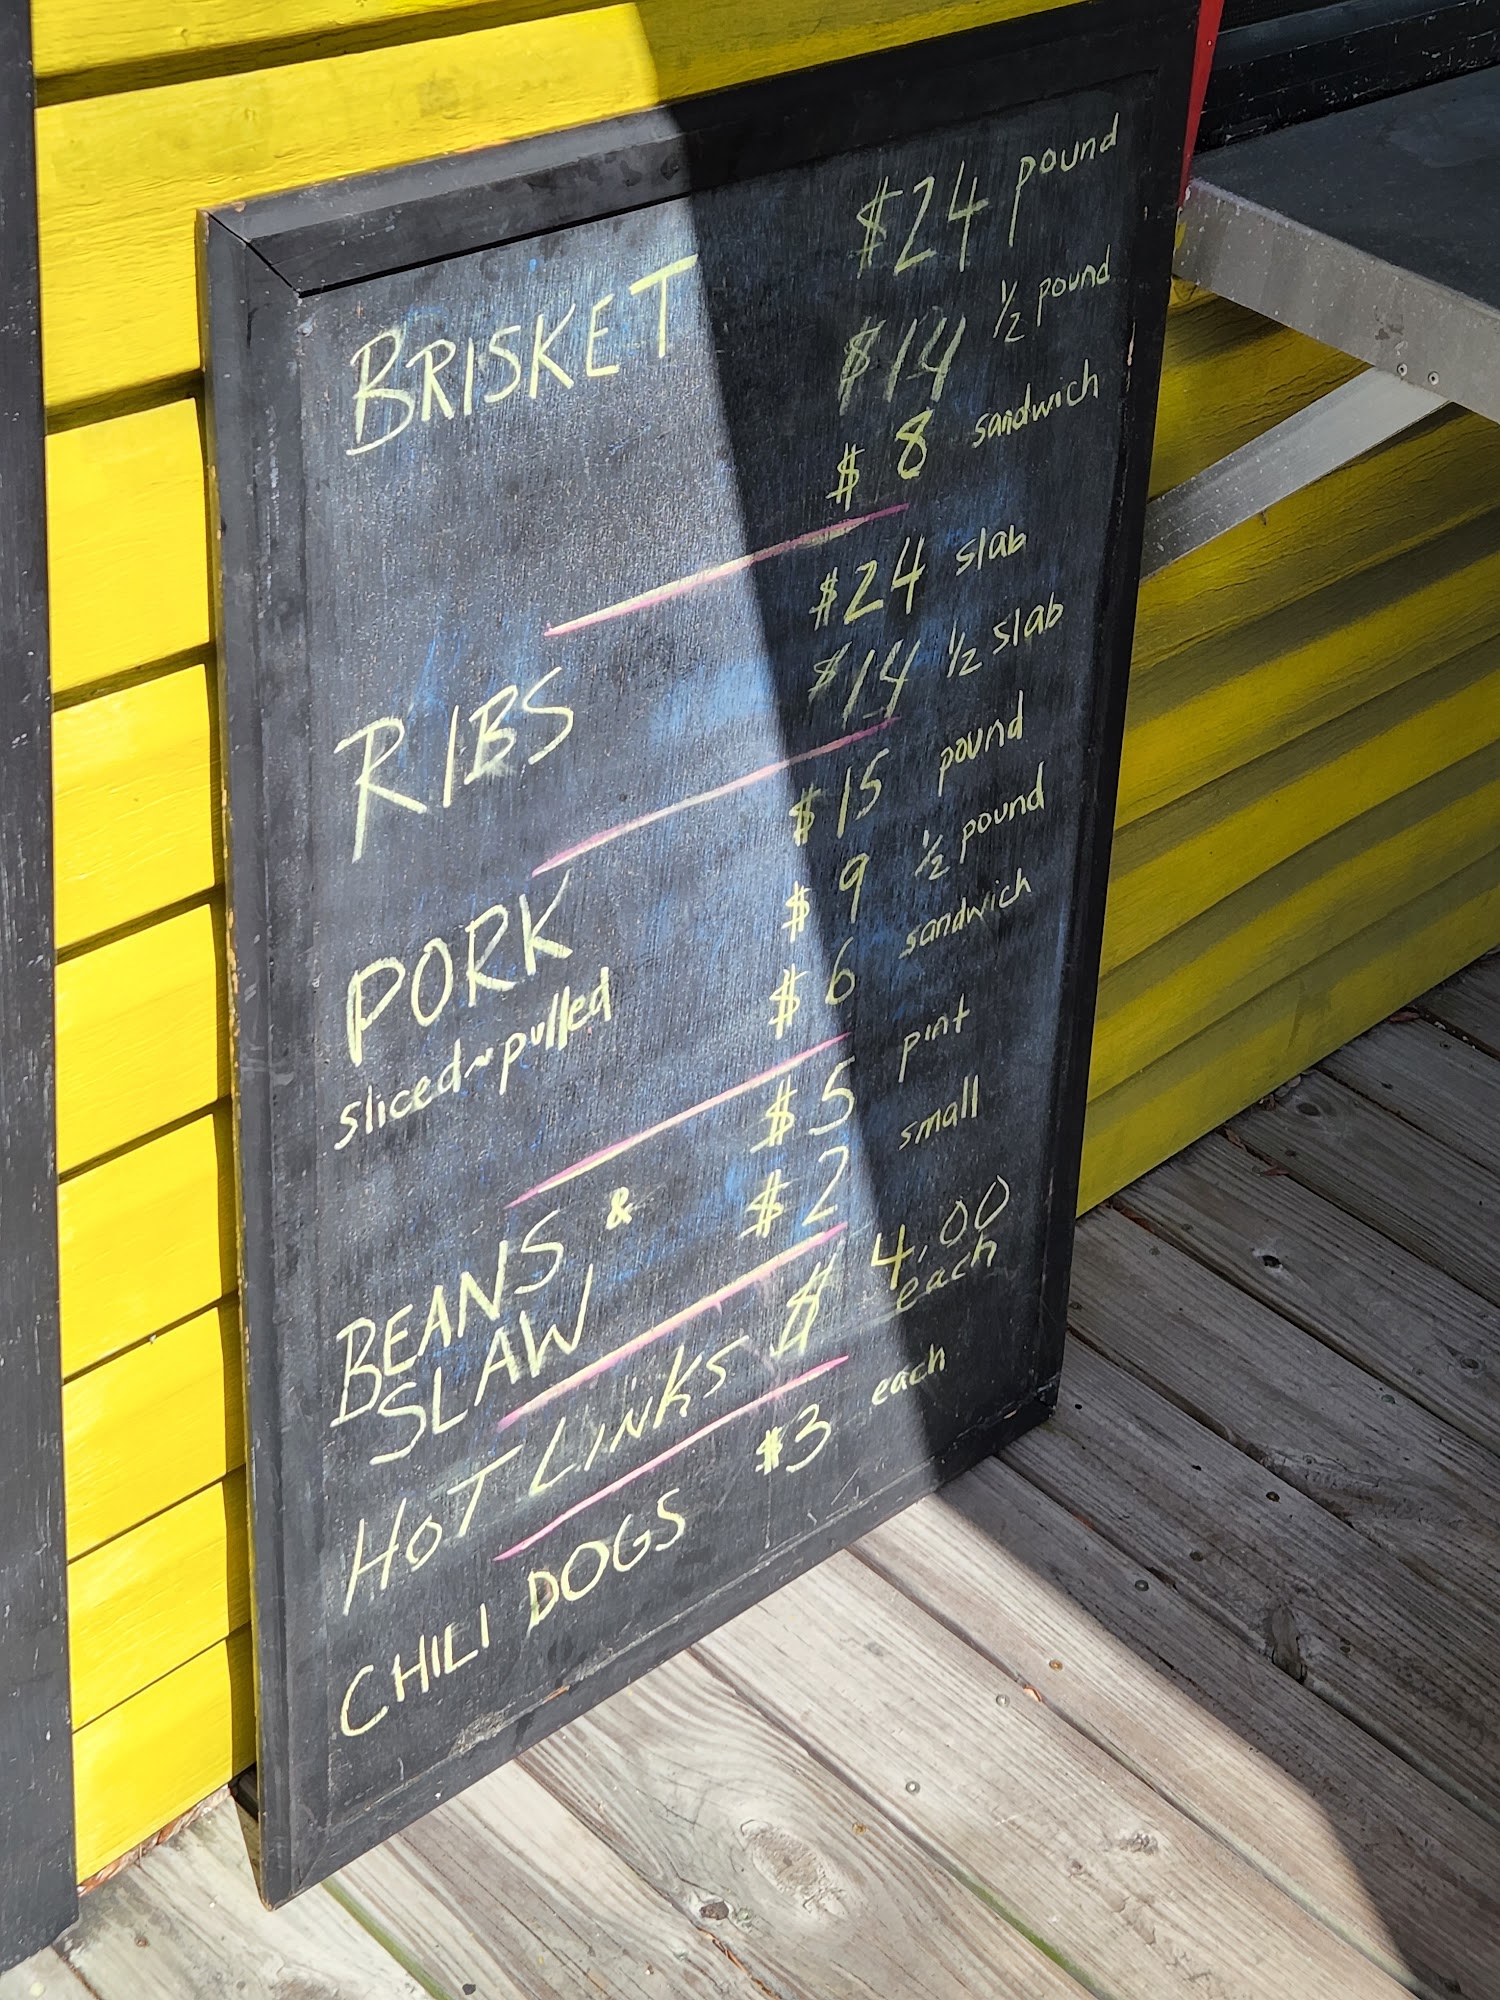 BRISKET $24 pound
$14 ½ pound
$ 8 sandwich
RIBS $24 slab
$14 ½ slab
PORK $15 pound
sliced~pulled $ 9 ½ pound
$ 6 sandwich
BEANS & $5 pint
SLAW $2 small
HOT LINKS $ 4.00
each
CHILI DOGS $3 each